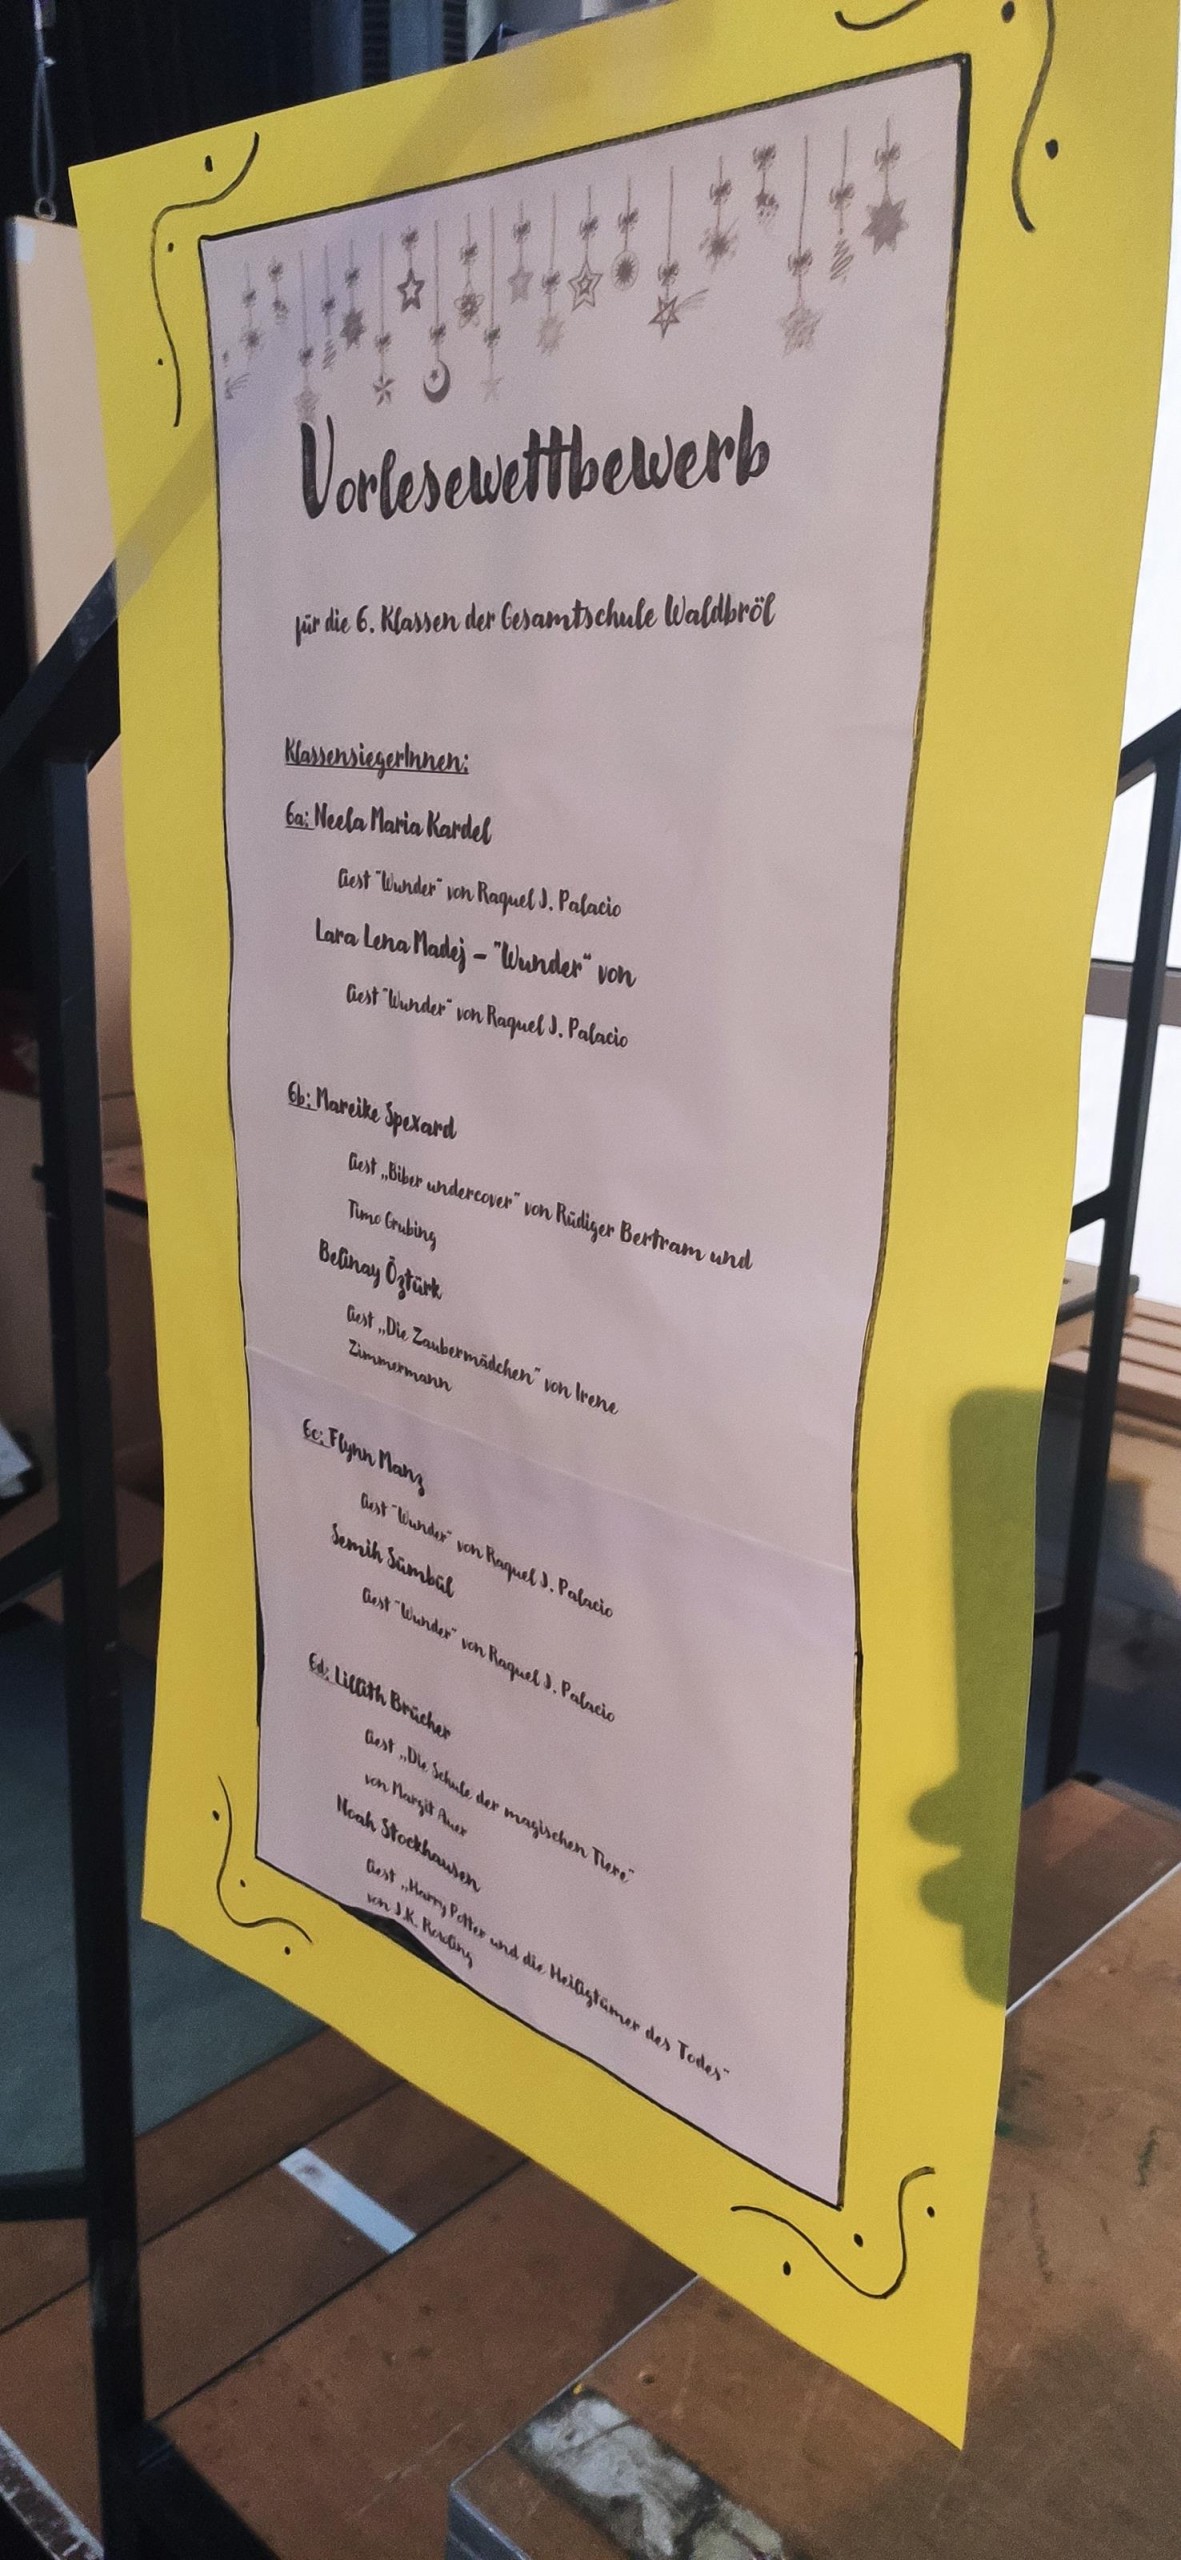 Vorlesewettbewerb
für die 6. Klassen der Gesamtschule Waldbröl
KlassensiegerInnen:
6a: Neela Maria Kardel
liest "Wunder" von Raquel J. Palacio
Lara Lena Madej – "Wunder" von
liest "Wunder" von Raquel J. Palacio
6b: Mareike Spexard
liest „Biber undercover" von Rüdiger Bertram und
Timo Grubing
Belinay Öztürk
liest „Die Zaubermädchen" von Irene
Zimmermann
6c: Flynn Manz
liest "Wunder" von Raquel J. Palacio
Semih Sümbül
liest "Wunder" von Raquel J. Palacio
6d: Lillith Brücher
liest „Die Schule der magischen Tiere"
von Margit Auer
Noah Stockhausen
liest „Harry Potter und die Heiligtümer des Todes"
von J.K. Rowling